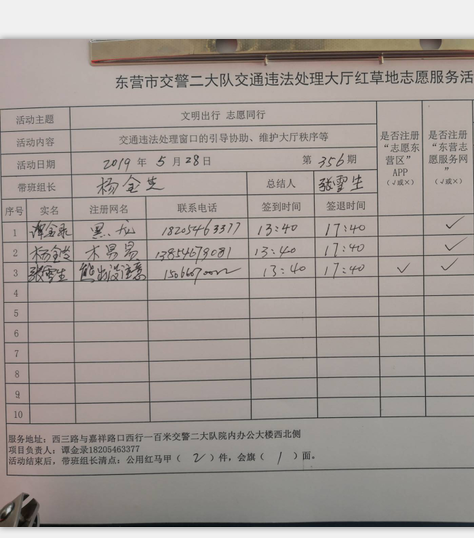 东营市交警二大队交通违法处理大厅红草地志愿服务活
活动主题 文明出行 志愿同行
活动内容 交通违法处理窗口的引导协助、维护大厅秩序等
活动日期 2019 年 5 月 28 日 第 356 期
带班组长 杨金志 总结人 张雪生
是否注册“志愿东营区”APP（√或×）
是否注册“东营志愿服务网”（√或×）
序号 实名 注册网名 联系电话 签到时间 签退时间
1 谭金录 黑龙 18205463377 13:40 17:40 ✓
2 杨金志 木易易 13854679081 13:40 17:40 ✓
3 张雪生 熊出没注意 13:40 17:40 ✓ ✓
4
5
6
7
8
9
10
服务地址：西三路与嘉祥路口西行一百米交警二大队院内办公大楼西北侧
项目负责人：谭金录18205463377
活动结束后，带班组长清点：公用红马甲（ 2 ）件，会旗（ 1 ）面。